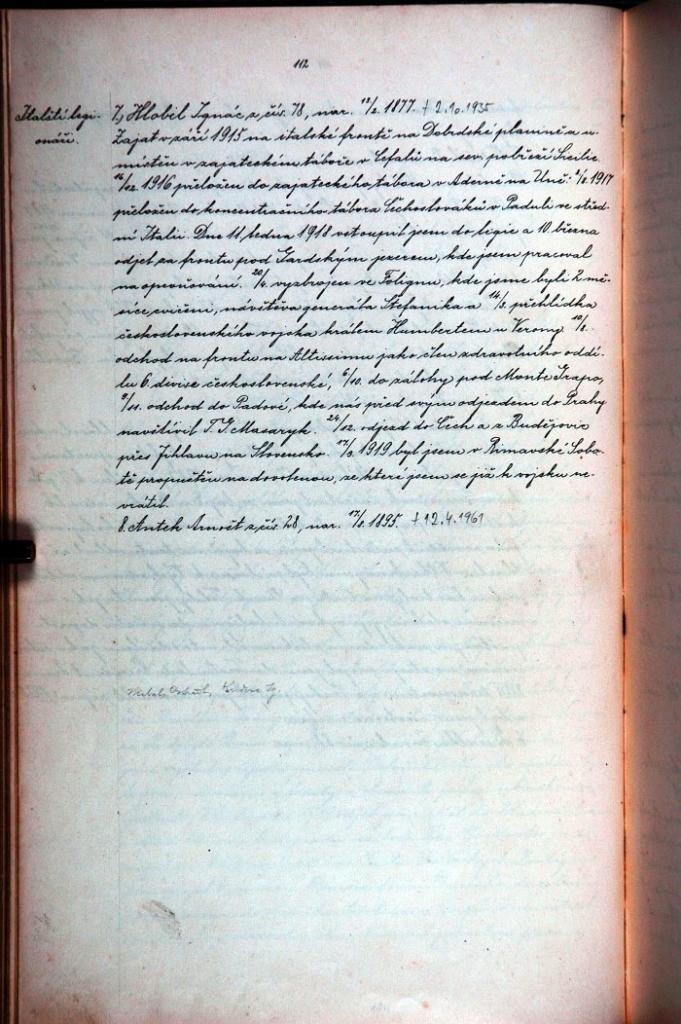 112
Italští legi-
onáři.
7, Hlobil Ignác z čís. 78, nar. 12/2. 1877. † 2.10.1935
Zajat v září 1915 na italské frontě na Doberdské planině a u-
místěn v zajateckém táboře v Cefalù na sev. pobřeží Sicilie.
16/12. 1916 přeložen do zajateckého tábora v Aderně na 1917
přeložen do koncentračního tábora Čechoslováků v Paduli ve střed-
ní Italii. Dne 11. ledna 1918 vstoupil jsem do legie a 10. března
odjel za frontu pod Gardským jezerem, kde jsem pracoval
na opevňování. 20/4. vyzbrojen ve Folignu, kde jsme byli 2 mě-
síce cvičeni, návštěva generála Štefanika a 14/8. přehlídka
československého vojska králem Humbertem u Verony.
odchod na frontu na Altissimu jako člen zdravotního oddí-
lu 6. divise československé, 6/10. do zálohy pod Monte Grapo,
9/11. odchod do Padové, kde nás před svým odjezdem do Prahy
navštívil T. G. Masaryk. 24/12. odjezd do Čech a z Budějovic
přes Jihlavu na Slovensko. 1919 byl jsem v Rimavské Sobo-
tě propuštěn na dovolenou, ze které jsem se již k vojsku ne-
vrátil.
8. Antek Arnošt z čís. 28, nar. 1895. † 12.4.1961